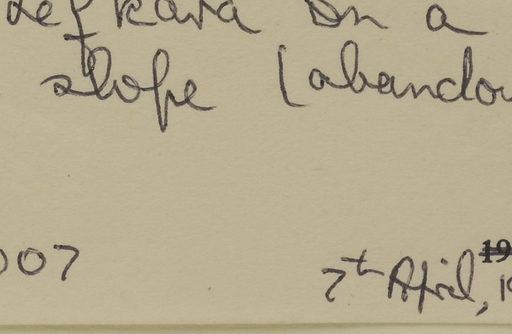 on a
slope (abandon
007
7th April, 19